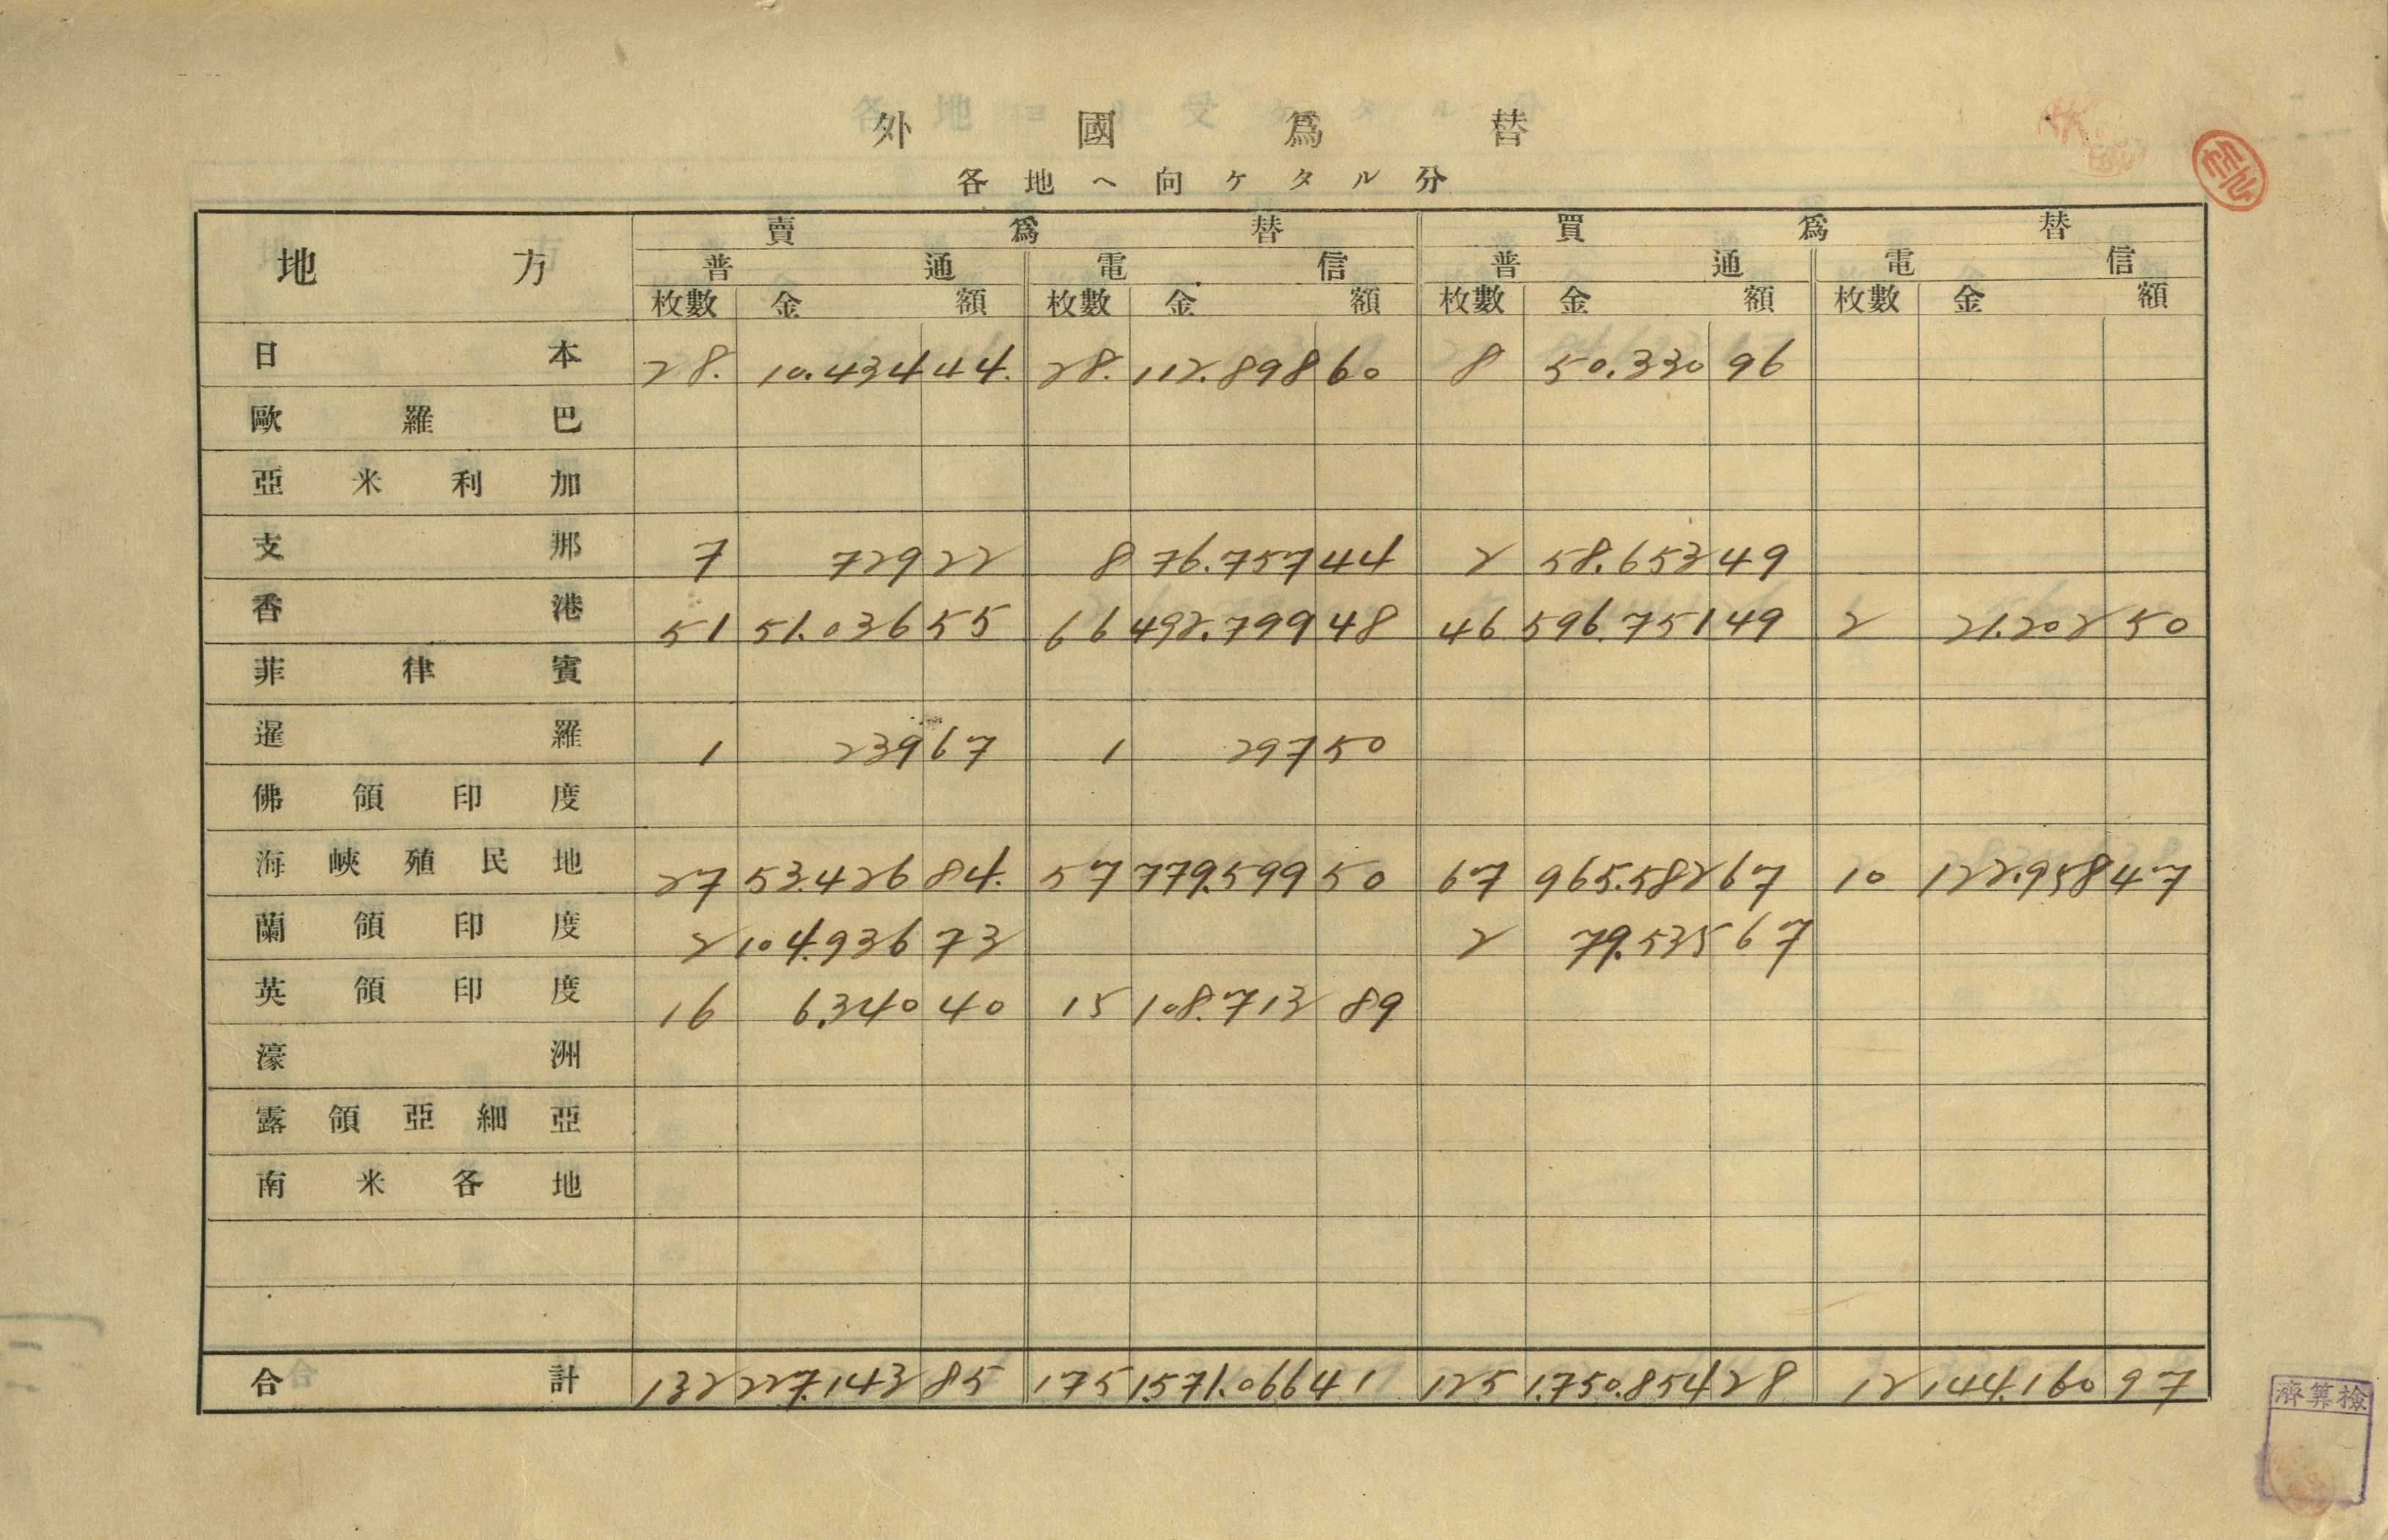 外國爲替
各地ヘ向ケタル分
地方 賣爲替 買爲替
普通 電信 普通 電信
枚數 金額 枚數 金額 枚數 金額 枚數 金額
日本 28. 10.434 44. 28. 112.898 60 8 50.330 96
歐羅巴
亞米利加
支那 7 729 22 8 76.757 44 2 58.653 49
香港 51 51.036 55 66 492.799 48 46 596.751 49 2 21.202 50
菲律賓
暹羅 1 239 67 1 297 50
佛領印度
海峽殖民地 27 53.426 84. 57 779.599 50 67 965.582 67 10 122.958 47
蘭領印度 2 104.936 73 2 79.535 67
英領印度 16 6.340 40 15 108.713 89
濠洲
露領亞細亞
南米各地
合計 132 227.143 85 175 1.571.066 41 125 1.750.854 28 12 144.160 97
濟算檢